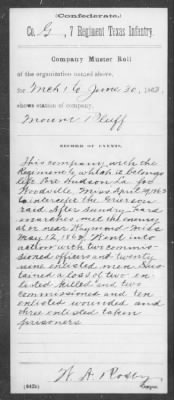 (Confederate.)
Co. G, 7 Regiment Texas Infantry.
Company Muster Roll
of the organization named above,
for Mch 1 to June 30, 1863.
shows station of company,
Mount Pluff
RECORD OF EVENTS.
This company with the
Regiment to which it belongs
left Port Hudson La. for
Woodville Miss April 29, 1863
to intercept the Grierson
raid After sundry hard
marches, met the enemy
at or near Raymond Miss
May 12, 1863. Went into
action with two commis-
sioned officers and twenty
nine enlisted men. Sus-
tained a loss of two en-
listed killed and two
commissioned and ten
enlisted wounded and
three enlisted taken
prisoners
W. A. Rosby
(642)
Copyist.